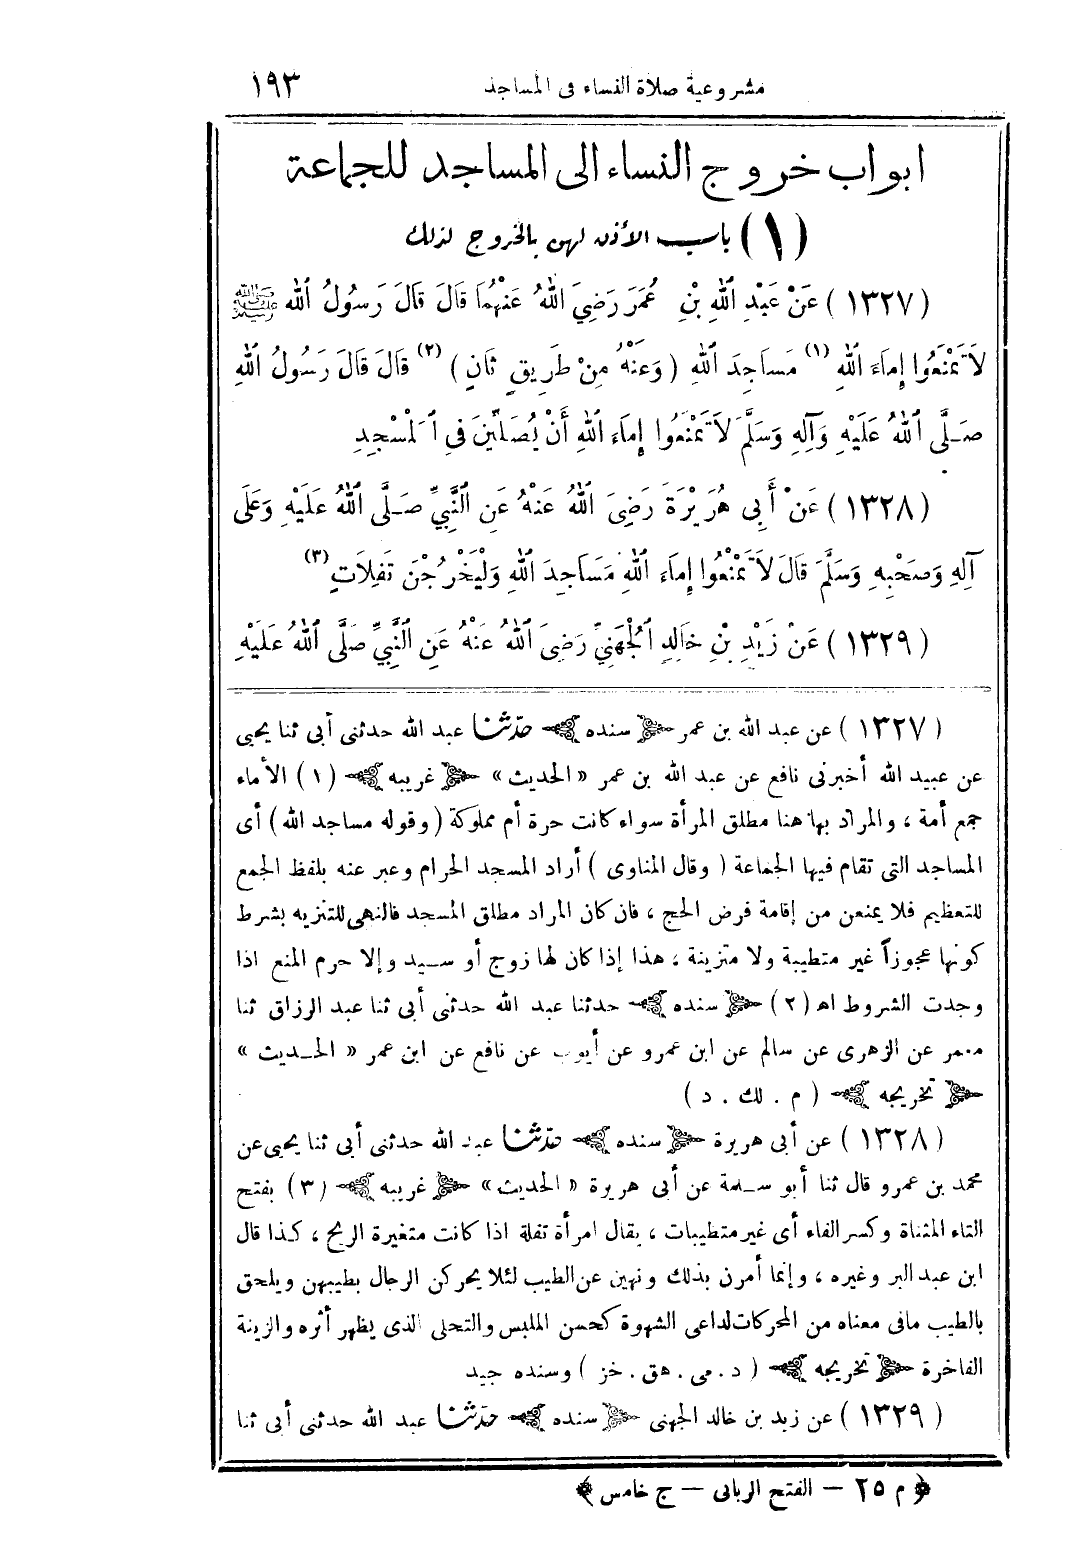 مشروعية صلاة النساء فى المساجد ١٩٣
ابواب خروج النساء الى المساجد للجماعة
(١) باب الأذن لهن بالخروج لذلك
(١٣٢٧) عَنْ عَبْدِ اللهِ بْنِ عُمَرَ رَضِيَ اللهُ عَنْهُمَا قَالَ قَالَ رَسُولُ اللهِ ﷺ
لاَ تَمْنَعُوا إِمَاءَ اللهِ (١) مَسَاجِدَ اللهِ (وَعَنْهُ مِنْ طَرِيقٍ ثَانٍ) (٢) قَالَ قَالَ رَسُولُ اللهِ
صَلَّى اللهُ عَلَيْهِ وَآلِهِ وَسَلَّمَ لاَ تَمْنَعُوا إِمَاءَ اللهِ أَنْ يُصَلِّينَ فِى الْمَسْجِدِ
(١٣٢٨) عَنْ أَبِى هُرَيْرَةَ رَضِىَ اللهُ عَنْهُ عَنِ النَّبِيِّ صَلَّى اللهُ عَلَيْهِ وَعَلَى
آلِهِ وَصَحْبِهِ وَسَلَّمَ قَالَ لاَ تَمْنَعُوا إِمَاءَ اللهِ مَسَاجِدَ اللهِ وَلْيَخْرُجْنَ تَفِلاَتٍ (٣)
(١٣٢٩) عَنْ زَيْدِ بْنِ خَالِدٍ الْجُهَنِيِّ رَضِىَ اللهُ عَنْهُ عَنِ النَّبِيِّ صَلَّى اللهُ عَلَيْهِ
(١٣٢٧) عن عبد الله بن عمر ﴿سنده﴾ حدّثنا عبد الله حدثنى أبى ثنا يحيى
عن عبيد الله أخبرنى نافع عن عبد الله بن عمر «الحديث» ﴿غريبه﴾ (١) الأماء
جمع أمة ، والمراد بها هنا مطلق المرأة سواء كانت حرة أم مملوكة (وقوله مساجد الله) أى
المساجد التى تقام فيها الجماعة (وقال المناوى) أراد المسجد الحرام وعبر عنه بلفظ الجمع
للتعظيم فلا يمنعن من إقامة فرض الحج ، فان كان المراد مطلق المسجد فالنهى للتنزيه بشرط
كونها عجوزاً غير متطيبة ولا متزينة ، هذا إذا كان لها زوج أو سيد وإلا حرم المنع اذا
وجدت الشروط اه (٢) ﴿سنده﴾ حدثنا عبد الله حدثنى أبى ثنا عبد الرزاق ثنا
معمر عن الزهرى عن سالم عن ابن عمرو عن أيوب عن نافع عن ابن عمر «الحديث»
﴿تخريجه﴾ (م . لك . د)
(١٣٢٨) عن أبى هريرة ﴿سنده﴾ حدّثنا عبد الله حدثنى أبى ثنا يحيى عن
محمد بن عمرو قال ثنا أبو سلمة عن أبى هريرة «الحديث» ﴿غريبه﴾ (٣) بفتح
التاء المثناة وكسر الفاء أى غير متطيبات ، يقال امرأة تفلة اذا كانت متغيرة الريح ، كذا قال
ابن عبد البر وغيره ، وإنما أمرن بذلك ونهين عن الطيب لئلا يحركن الرجال بطيبهن ويلحق
بالطيب ما فى معناه من المحركات لداعى الشهوة كحسن الملبس والتحلى الذى يظهر أثره والزينة
الفاخرة ﴿تخريجه﴾ (د . مى . هق . خز) وسنده جيد
(١٣٢٩) عن زيد بن خالد الجهنى ﴿سنده﴾ حدّثنا عبد الله حدثنى أبى ثنا
﴿م ٢٥ – الفتح الربانى – ج خامس﴾